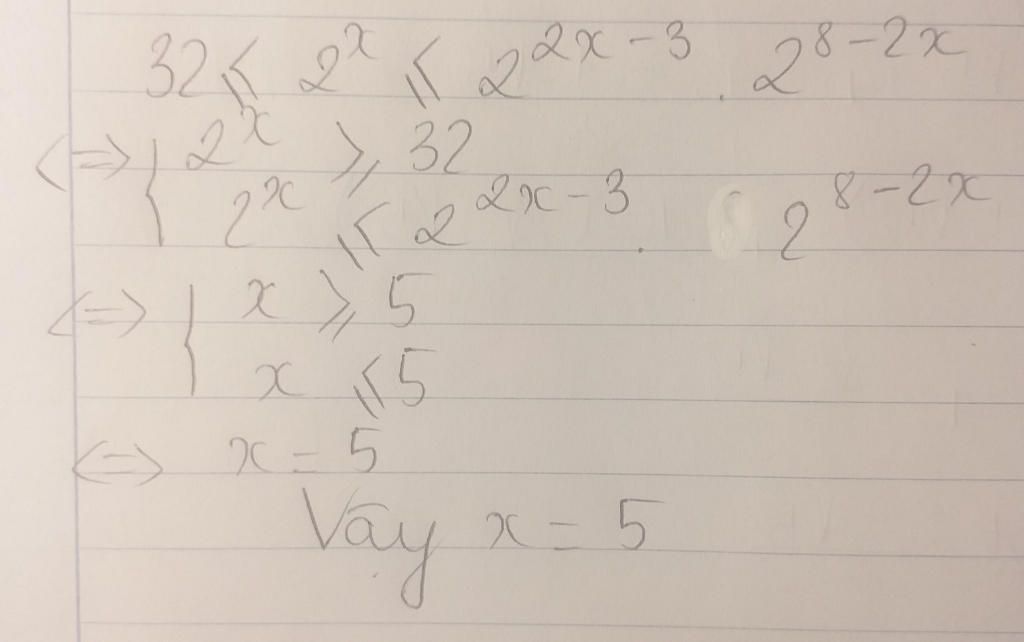 32 ≤ 2^x ≤ 2^{2x-3} . 2^{8-2x}
<=> { 2^x ≥ 32
2^x ≤ 2^{2x-3} . 2^{8-2x}
<=> { x ≥ 5
x ≤ 5
<=> x = 5
Vậy x = 5